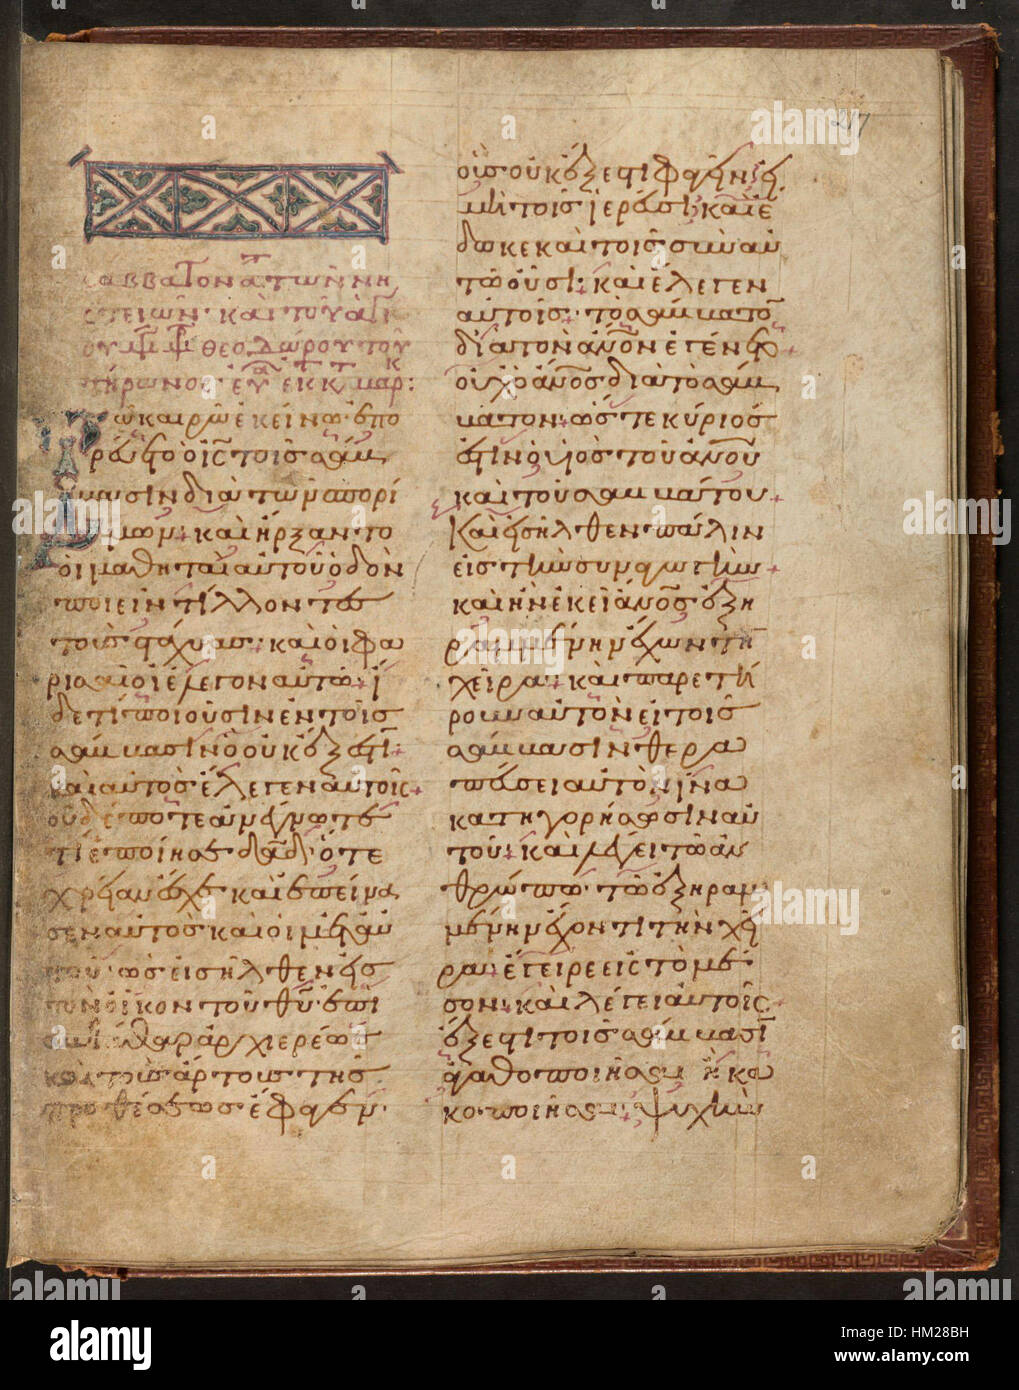 217
σάββατον ᾱ τῶν νη
στειῶν· καὶ τοῦ ἁγί
θεοδώρου τοῦ
τήρωνος· ἐκ μαρ:
Τῶ καιρῶ ἐκείνω· ἐπο
ρεύετο ὁ ις τοῖς σάβ
βασιν διὰ τῶν σπορί
μων· καὶ ἤρξαντο
οἱ μαθηταὶ αὐτοῦ ὁδὸν
ποιεῖν τίλλοντες
τοὺς στάχυας· καὶ οἱ φα
ρισαῖοι ἔλεγον αὐτῶ· ἴ
δε τί ποιοῦσιν ἐν τοῖς
σάββασιν ὃ οὐκ ἔξεστι·
καὶ αὐτὸς ἔλεγεν αὐτοῖς
οὐδέποτε ἀνέγνωτε
τί ἐποίησε δαδ· ὅτε
χρείαν ἔσχε καὶ ἐπείνα
σεν αὐτὸς καὶ οἱ μετ αὐ
τοῦ· πῶς εἰσῆλθεν εἰς
τὸν οἶκον τοῦ θυ· ἐπὶ
ἀβιάθαρ ἀρχιερέως
καὶ τοὺς ἄρτους τῆς
προθέσεως ἔφαγεν·
οὓς οὐκ ἔξεστι φαγεῖν εἰ
μὴ τοῖς ἱερεῦσι· καὶ ἔ
δωκε καὶ τοῖς σὺν αὐ
τῶ οὖσι· καὶ ἔλεγεν
αὐτοῖς· τὸ σάββατον
διὰ τὸν ἄνον ἐγένετο
οὐχ ὁ ἄνος διὰ τὸ σάβ
βατον· ὥστε κύριός
ἐστιν ὁ υἱὸς τοῦ ἀνου
καὶ τοῦ σαββάτου·
Καὶ εἰσῆλθεν πάλιν
εἰς τὴν συναγωγήν·
καὶ ἦν ἐκεῖ ἄνος ἐξη
ραμμένην ἔχων τὴν
χεῖρα· καὶ παρετή
ρουν αὐτὸν εἰ τοῖς
σάββασιν θερα
πεύσει αὐτὸν ἵνα
κατηγορήσωσιν αὐ
τοῦ· καὶ λέγει τῶ ἀν
θρώπω· τῶ ἐξηραμ
μένην ἔχοντι τὴν χεῖ
ρα· ἔγειρε εἰς τὸ μέ
σον· καὶ λέγει αὐτοῖς
ἔξεστι τοῖς σάββασῑ
ἀγαθοποιῆσαι ἢ κα
κοποιῆσαι· ψυχὴν
alamy
Image ID: HM28BH
www.alamy.com